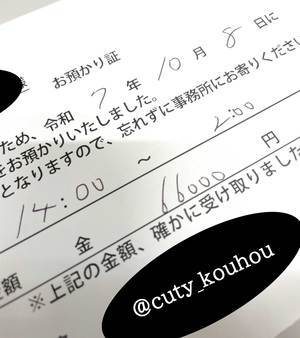 お預かり証
ため、令和 7 年 10 月 8 日に
をお預かりいたしました。
となりますので、忘れずに事務所にお寄りください
14:00 ～ 2:00
金 66000 円
額
※上記の金額、確かに受け取りました
@cuty_kouhou